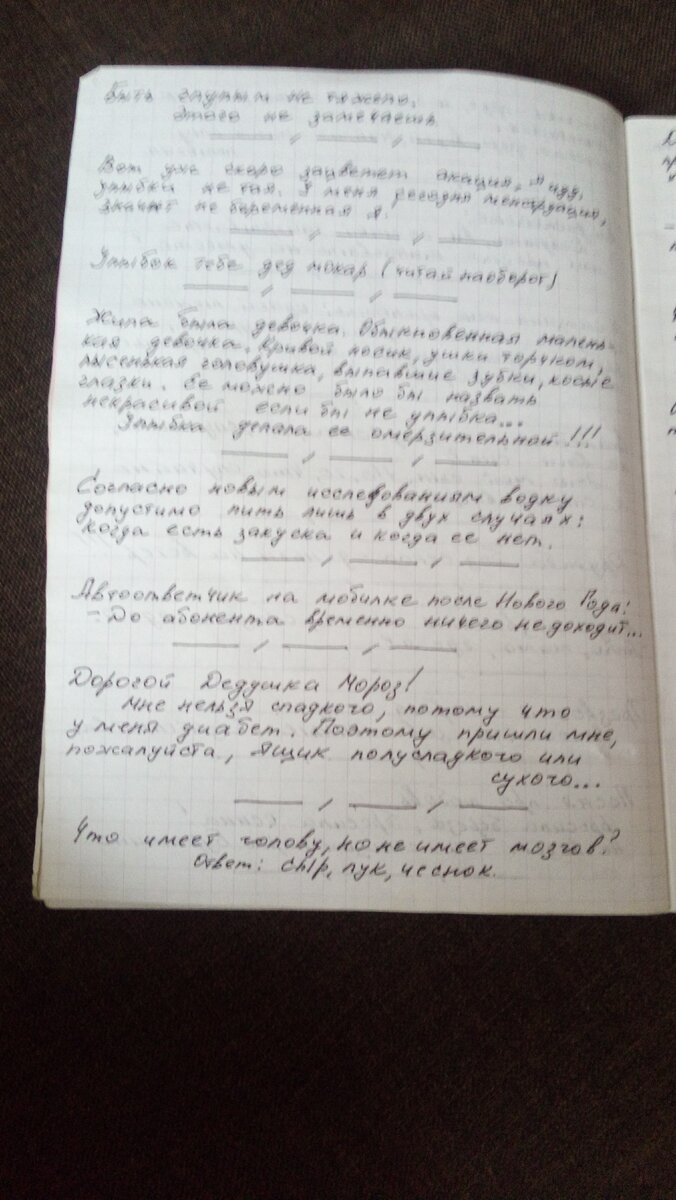 Быть глупым не тяжело,
этого не замечаешь
Вот уже скоро зацветет акация, я иду,
улыбки не тая. У меня сегодня менструация,
значит не беременная я.
Улыбок тебе дед мокар (читай наоборот)
Жила была девочка. Обыкновенная малень-
кая девочка. Кривой носик, ушки торчком,
лысенькая головушка, выпавшие зубки, косые
глазки. Ее можно было бы назвать
некрасивой если бы не улыбка...
Улыбка делала ее омерзительной!!!
Согласно новым исследованиям водку
допустимо пить лишь в двух случаях:
когда есть закуска и когда ее нет.
Автоответчик на мобилке после Нового Года:
- До абонента временно ничего не доходит...
Дорогой Дедушка Мороз!
Мне нельзя сладкого, потому что
у меня диабет. Поэтому пришли мне,
пожалуйста, ящик полусладкого или
сухого...
Что имеет голову, но не имеет мозгов?
Ответ: сыр, лук, чеснок.